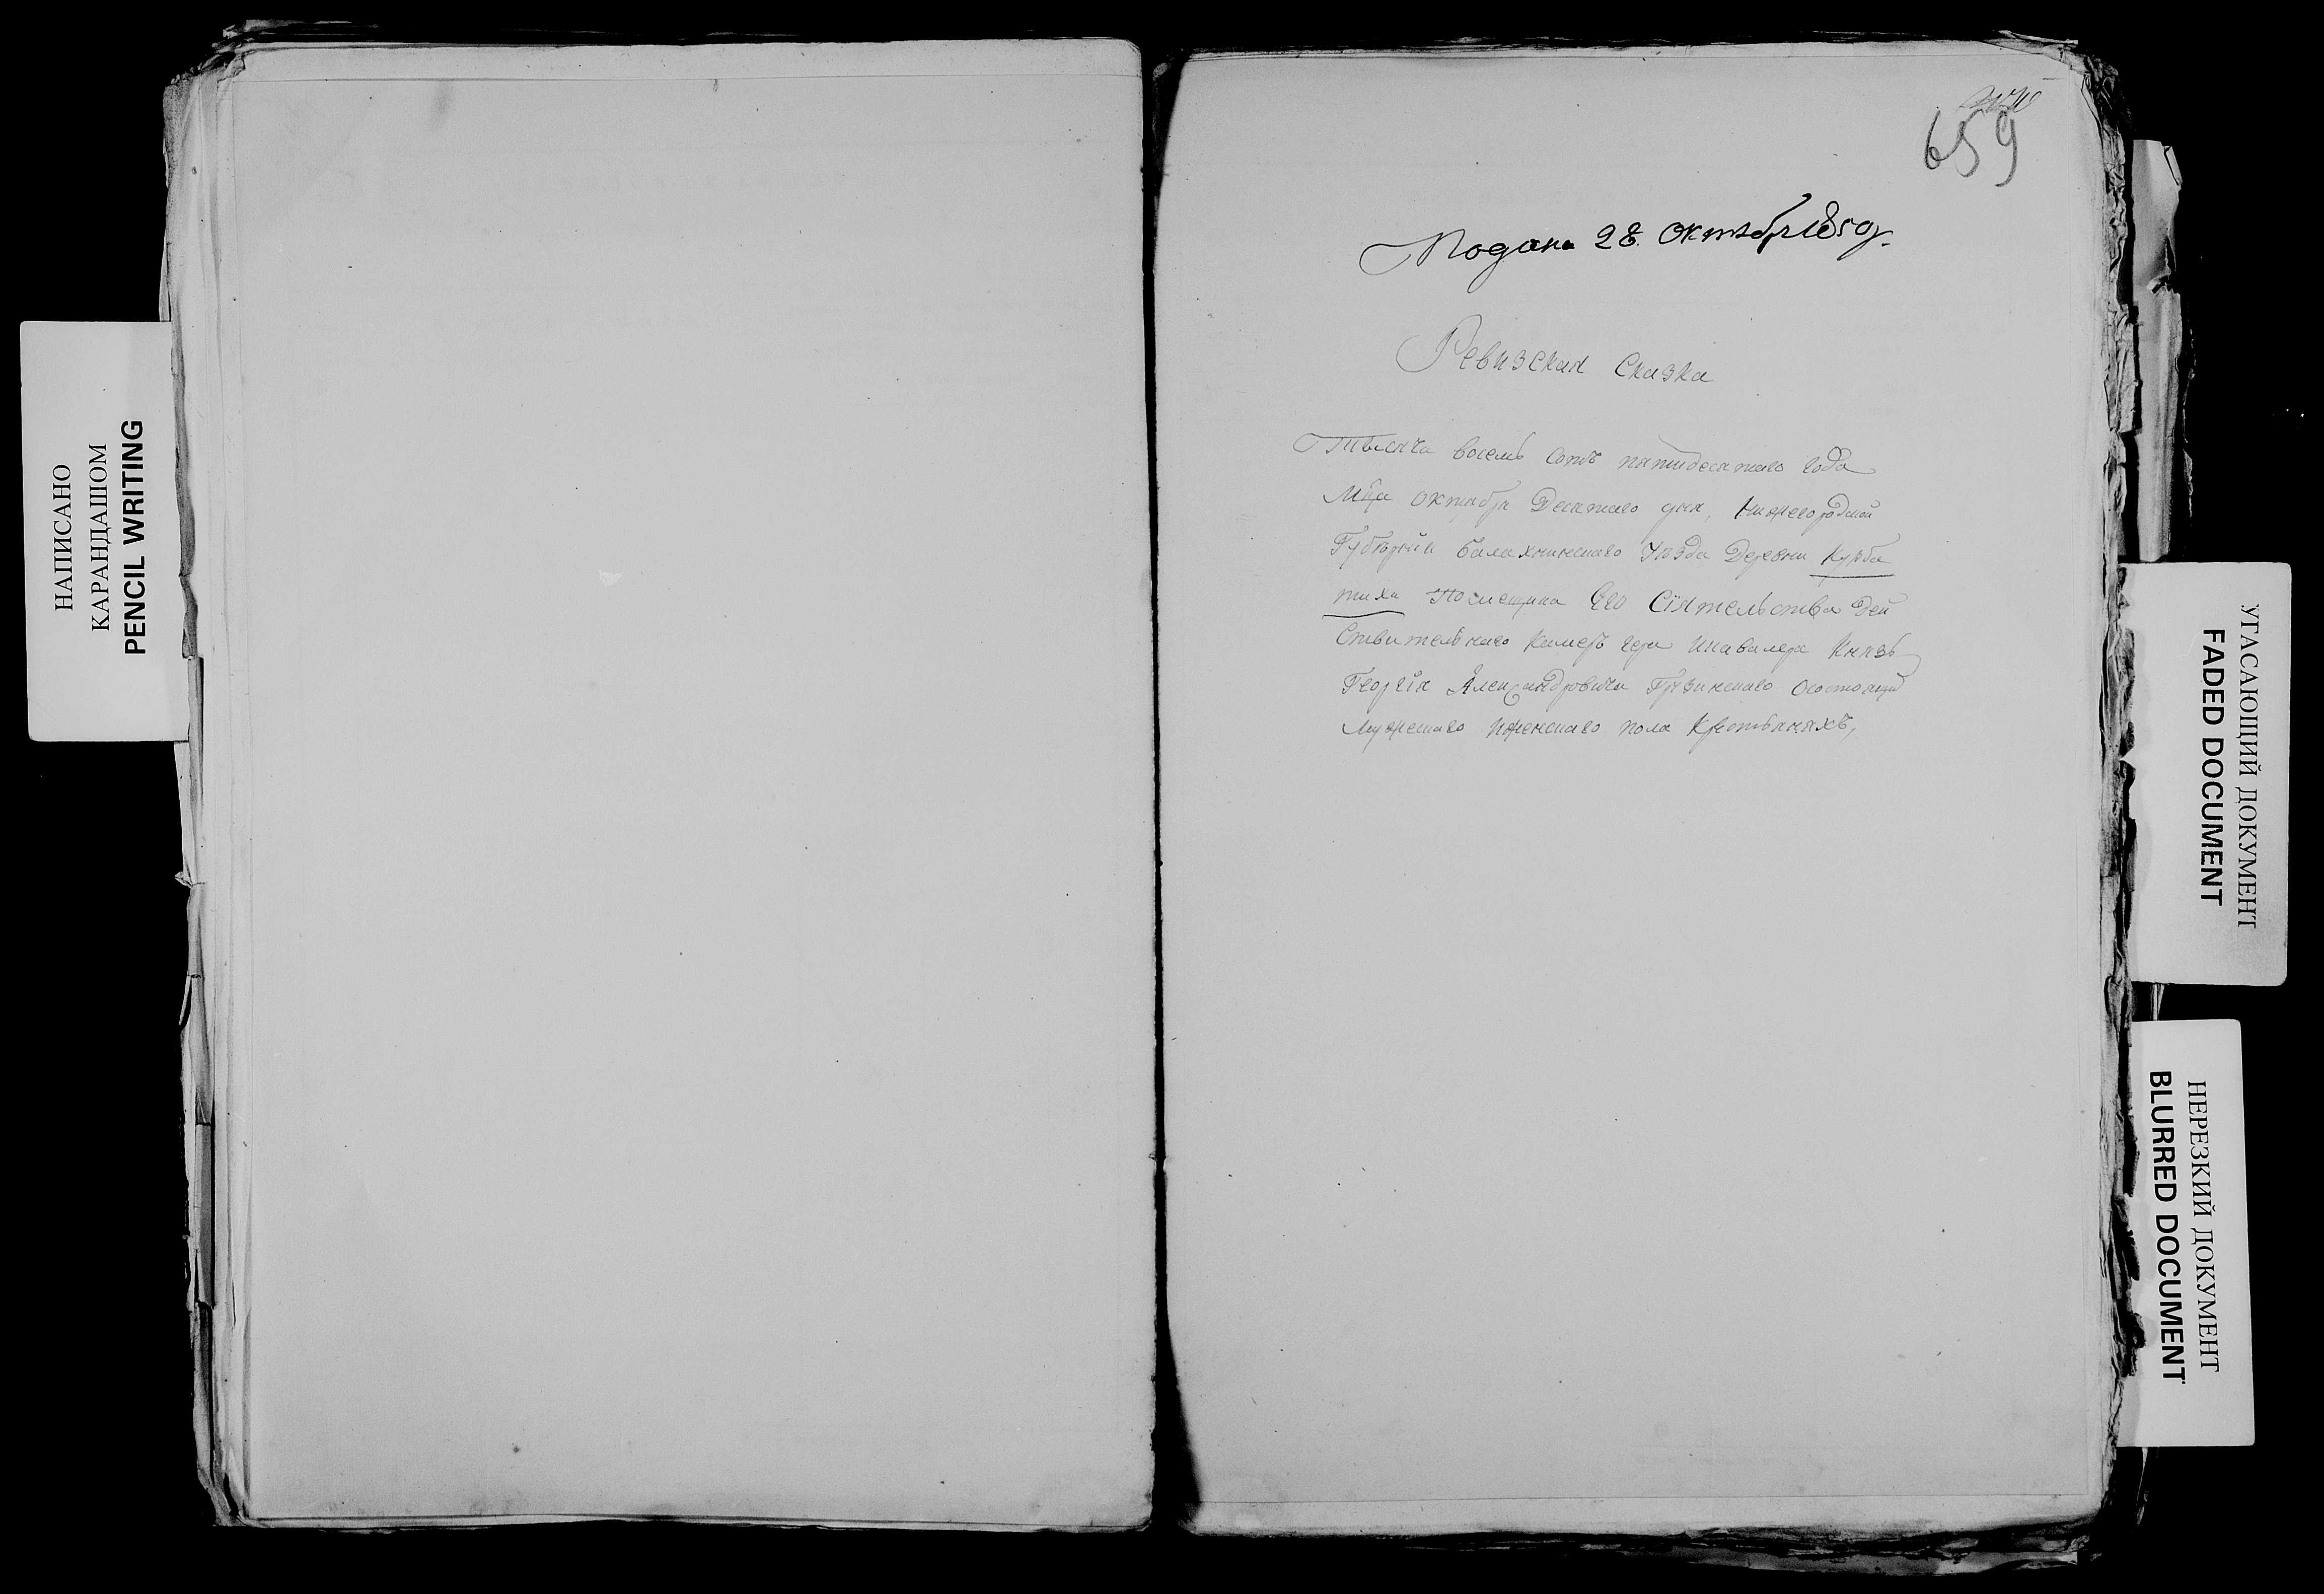 НАПИСАНО
КАРАНДАШОМ
PENCIL WRITING
659
Подана 28. Октября 1850 г.
Ревизская Сказка
Тысяча восемь сотъ пятидесятаго года
Мца Октября Десятаго дня, Нижегородской
Губернїи Балахнинскаго Уѣзда Деревни Курба
тиха Помещика Его Сїятельства Дей
Ствительнаго Камеръ гера Икавалера Князь
Георгїя Александровича Грузинскаго Осостоящих
Мужескаго Иженскаго пола Крстьяняхъ,
УГАСАЮЩИЙ ДОКУМЕНТ
FADED DOCUMENT
НЕРЕЗКИЙ ДОКУМЕНТ
BLURRED DOCUMENT